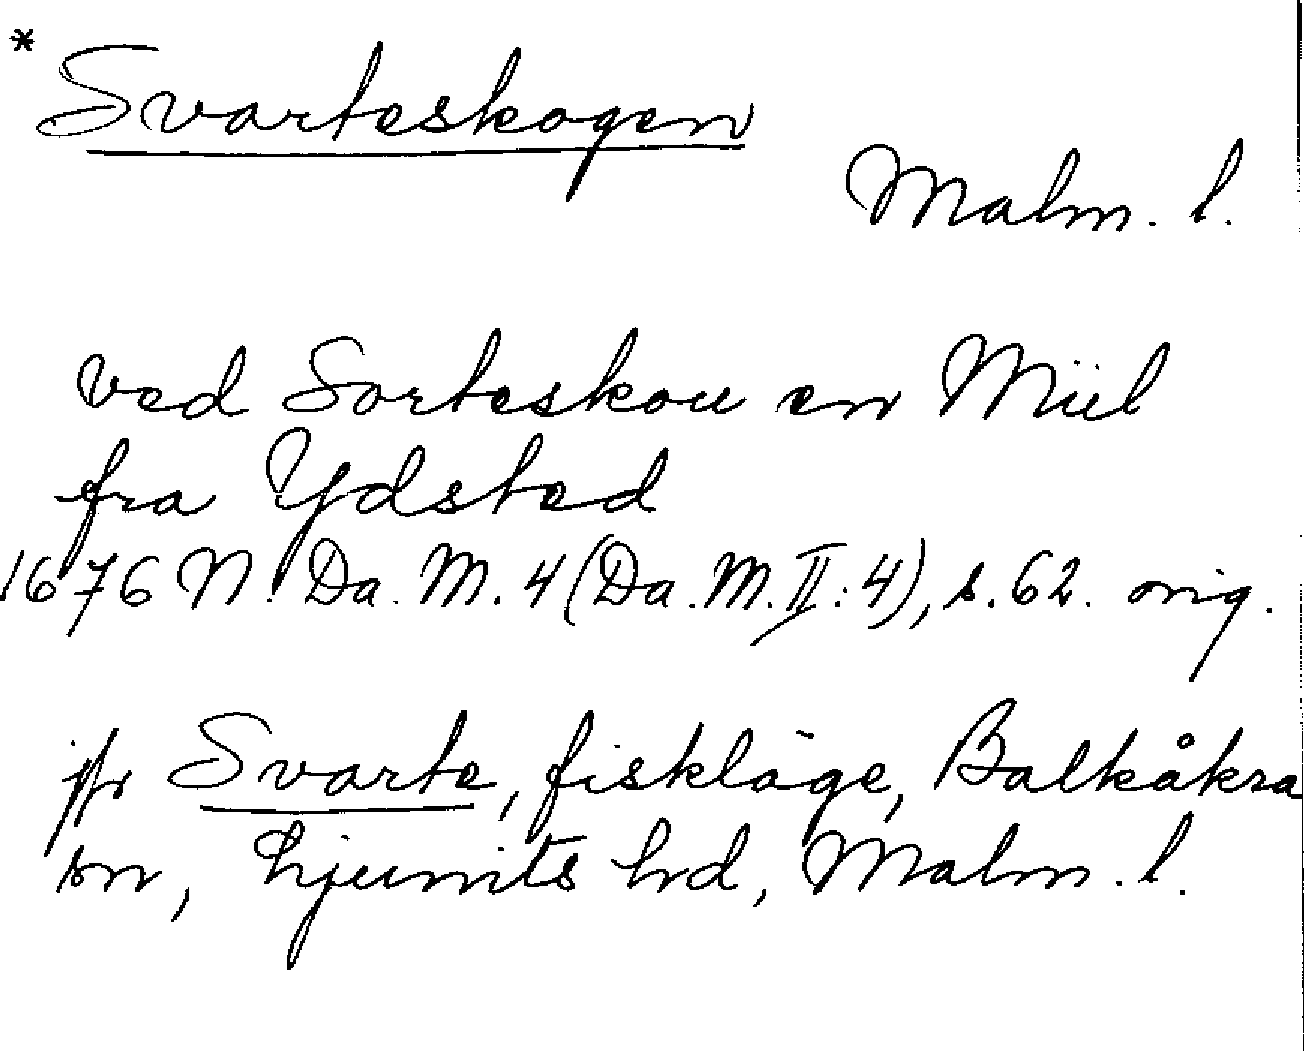 * Svarteskogen
Malm. l.
ved Sorteskou en Miil
fra Ydsted
1676 N. Da. M. 4 (Da. M. II: 4), s. 62. orig.
jfr Svarte, fiskläge, Balkåkra
sn, Ljunits hd, Malm. l.